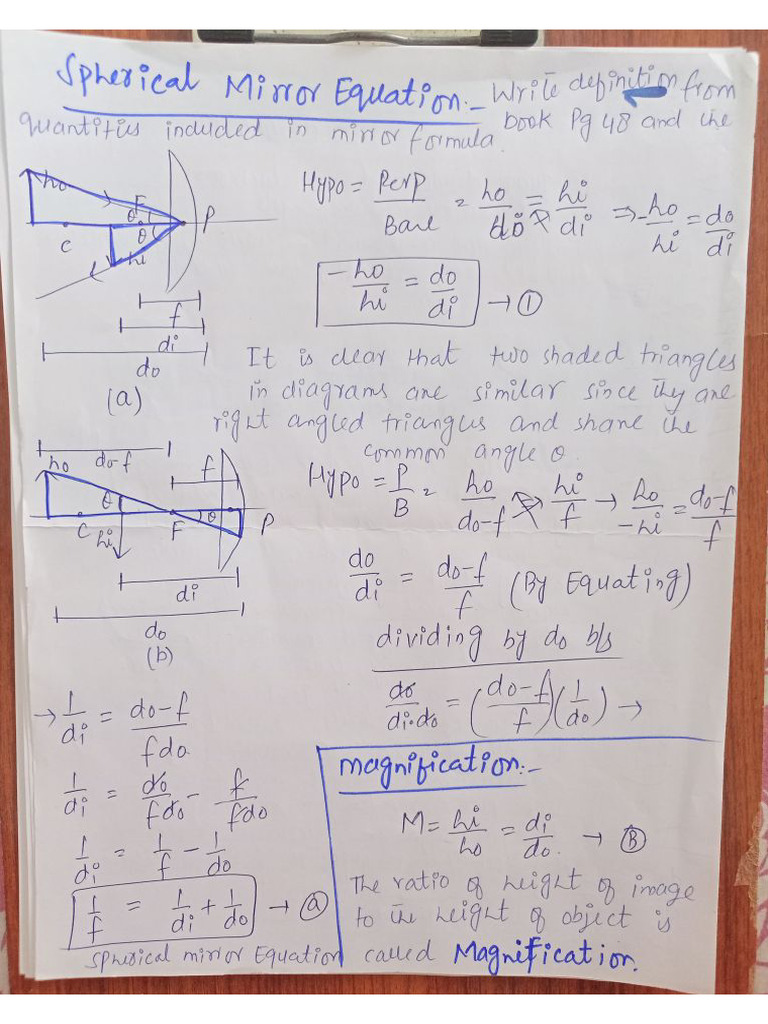 Spherical Mirror Equation:- Write definition from
book Pg 48 and the
quantities included in mirror formula.
ho
F
θ
θ
P
C
hi
f
di
do
(a)
Hypo = Perp/Base = ho/do = hi/di ⇒ -ho/hi = do/di
-ho/hi = do/di → ①
It is clear that two shaded triangles
in diagrams are similar since they are
right angled triangles and share the
common angle θ.
do-f
ho
f
θ
θ
C
hi
F
P
di
do
(b)
Hypo = P/B = ho/do-f hi/f → ho/-hi = do-f/f
do/di = do-f/f (By Equating)
dividing by do b/s
do/di·do = (do-f/f)(1/do) →
→ 1/di = do-f/fdo
1/di = do/fdo - f/fdo
1/di = 1/f - 1/do
1/f = 1/di + 1/do → ⓐ
Spherical mirror Equation
Magnification:-
M = hi/ho = di/do → Ⓑ
The ratio of height of image
to the height of object is
called Magnification.